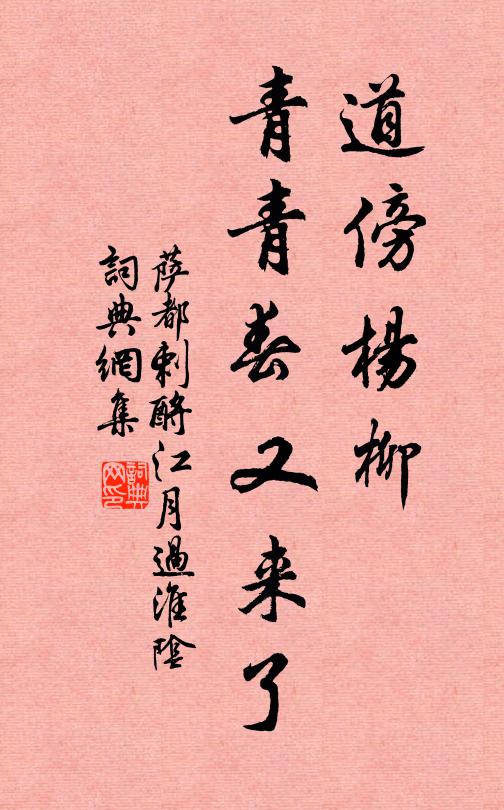 道傍楊柳
青青春又来了
薩都剌酹江月過淮陰
詞典網集
詞典网印